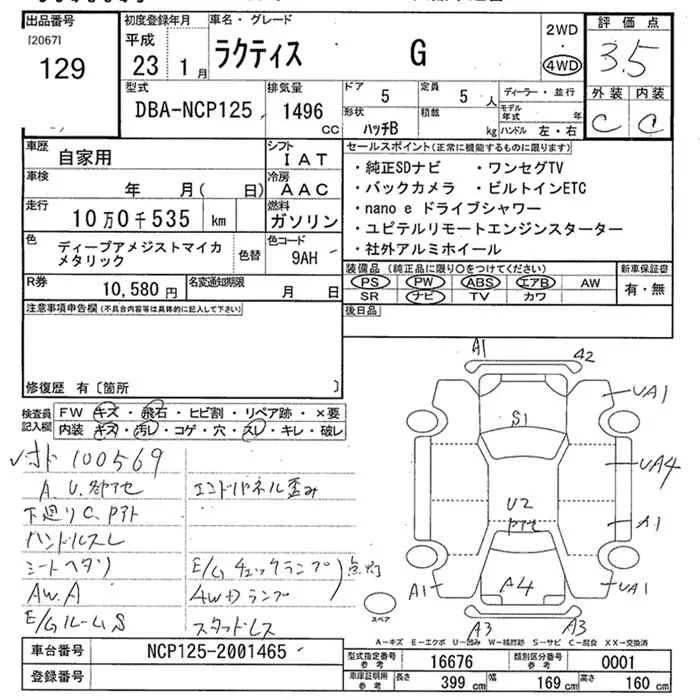 出品番号
[2067]
129
初度登録年月
平成
23 1月
車名・グレード
ラクティス G
2WD
・
4WD
評価点
3.5
外装 内装
C C
型式
DBA-NCP125
排気量
1496
CC
ドア 5
定員 5 人
形状 ハッチB
積載 kg
ディーラー・並行
モデル年式 年
ハンドル 左・右
車歴
自家用
シフト
IAT
車検
年 月( 日)
冷房
AAC
走行
10万0千535 km
燃料
ガソリン
色
ディープアメジストマイカ
メタリック
色替
色コード
9AH
R券
10,580 円
名変通知期限
月 日
セールスポイント(正常に機能するものに限ります)
・純正SDナビ ・ワンセグTV
・バックカメラ ・ビルトインETC
・nano e ドライブシャワー
・ユピテルリモートエンジンスターター
・社外アルミホイール
装備品 (純正品に限り○をつけてください)
PS PW ABS エアB AW
SR ナビ TV カワ
新車保証書
有・無
後日品
注意事項申告欄(不具合内容等は具体的に記入して下さい)
修復歴 有〔箇所 〕
検査員
記入欄
FW キズ・飛石・ヒビ割・リペア跡・×要
内装 キズ・汚レ・コゲ・穴・スレ・キレ・破レ
100569
A.U.
エンドパネル歪み
下廻りC.
ハンドルスレ
シートヘタリ
E/Gチェックランプ 点灯
AW.A
4WDランプ
E/GルームS
スタッドレス
A1
A2
UA1
S1
UA4
U2
A1
A1
A4
UA1
A3
A3
スペア
A-キズ E-エクボ U-凹み W-補修跡 S-サビ C-腐食 XX-交換済
車台番号
NCP125-2001465
登録番号
型式指定番号
参考
16676
類別区分番号
参考
0001
車庫証明用
参考
長さ 399 cm
幅 169 cm
高さ 160 cm